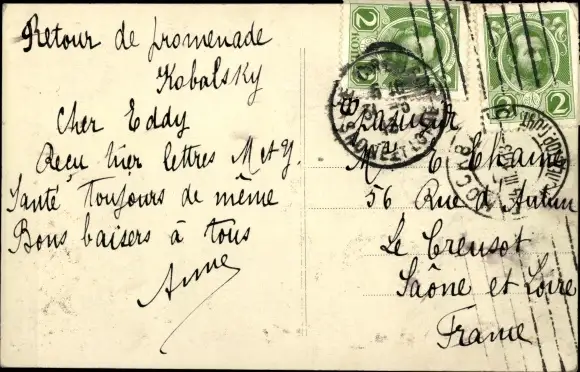 Retour de promenade
Kobalsky
Cher Eddy
Reçu hier lettres M et Y.
Santé Toujours de même
Bons baisers à tous
Anne
Monsieur
M E Chaine
56 Rue d'Autun
Le Creusot
Saône et Loire
France
2
2
2
МОСКВА